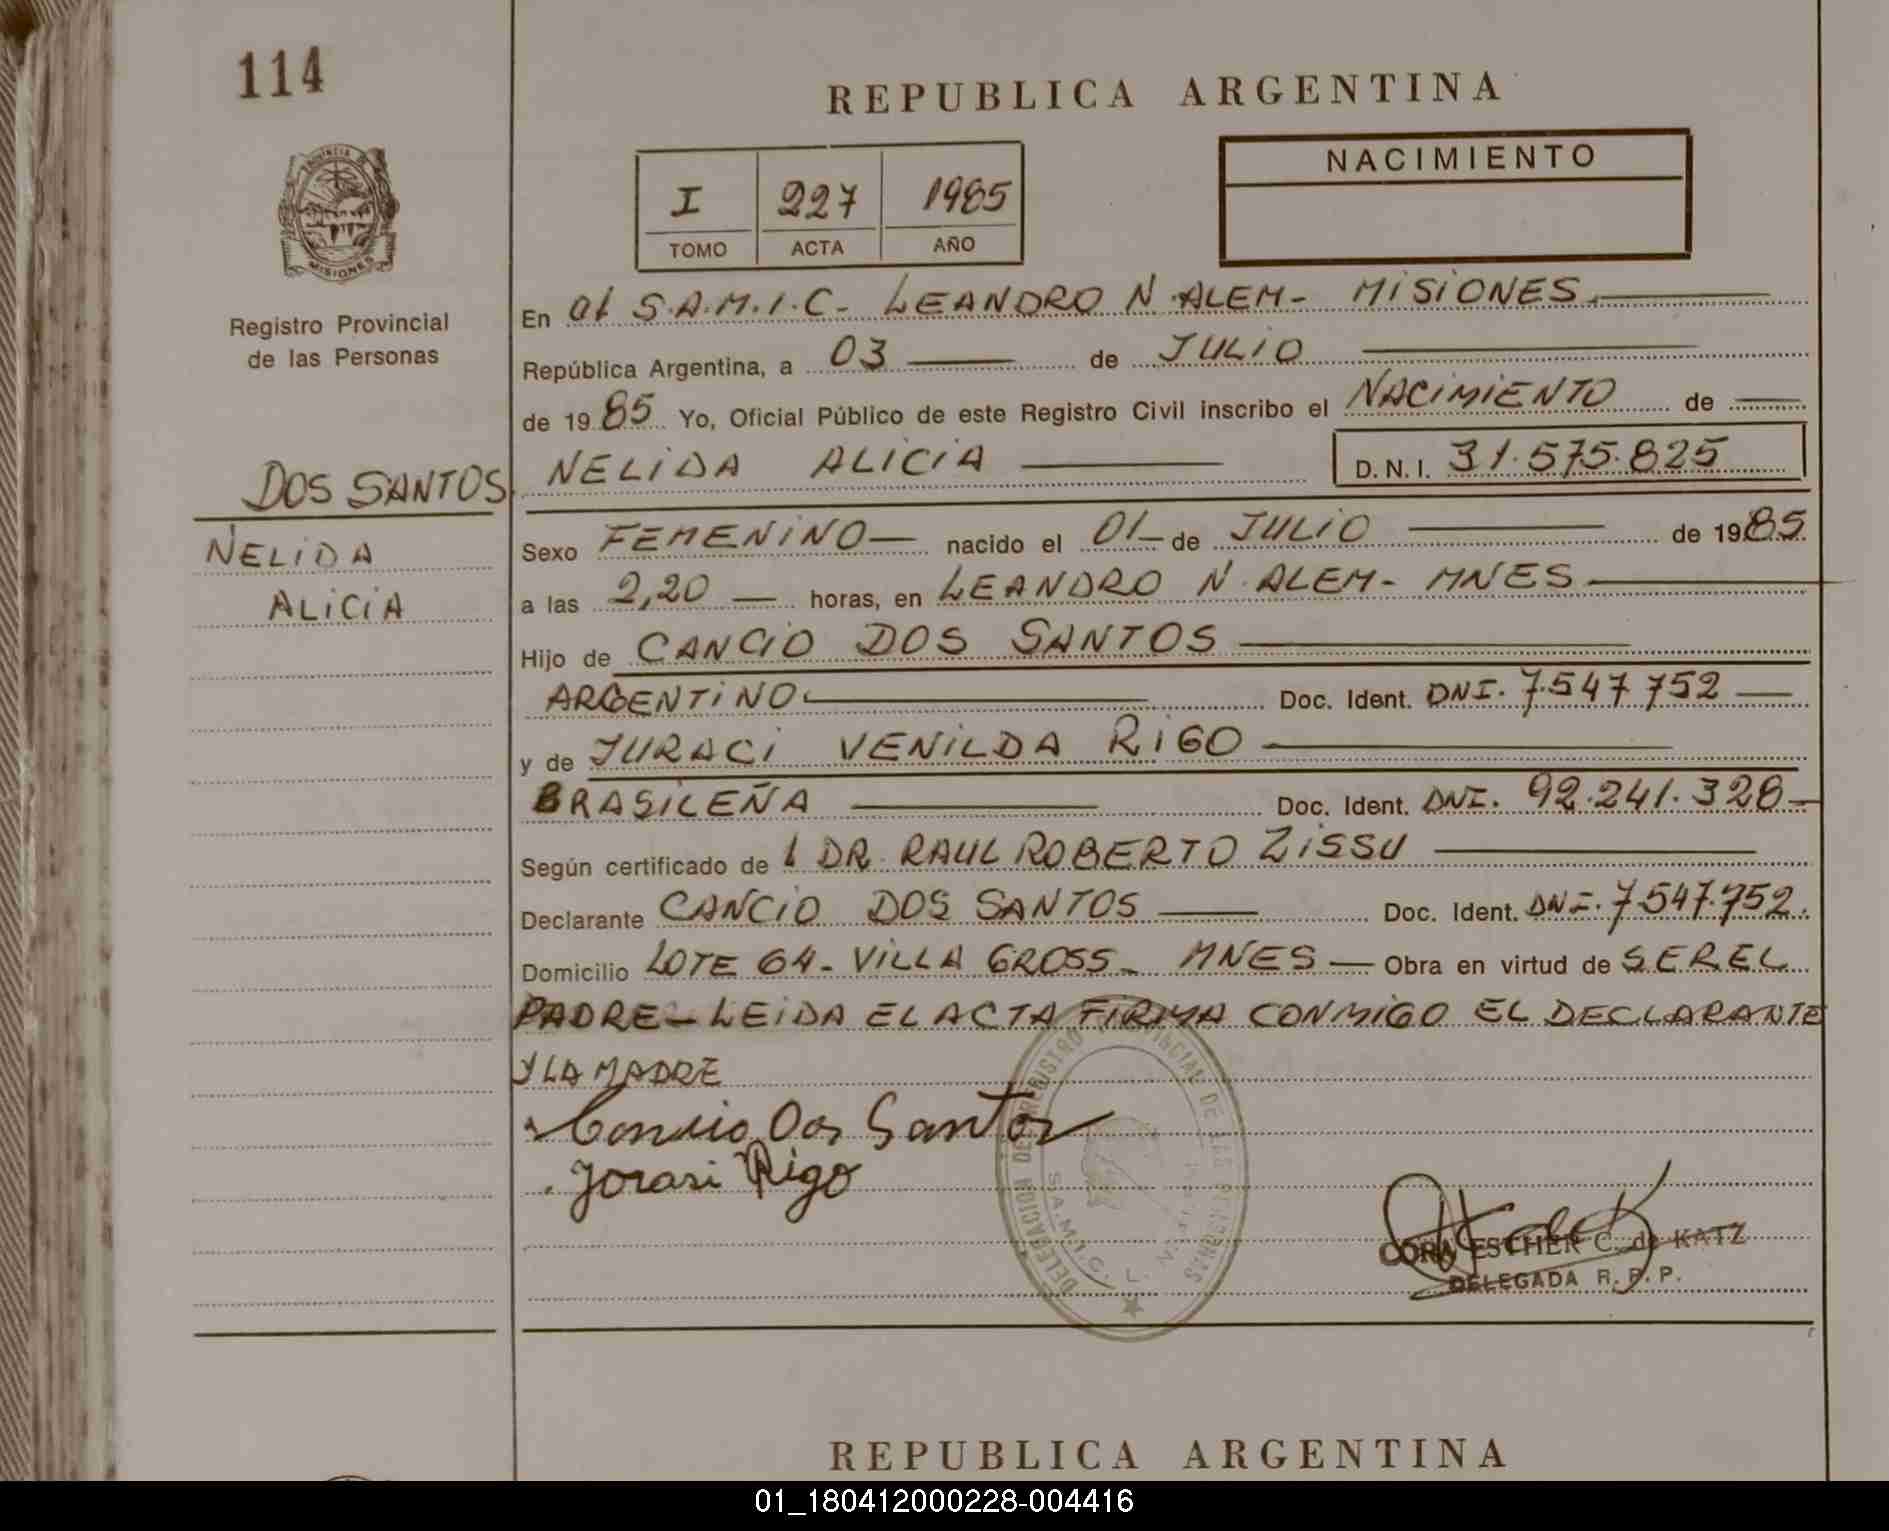 114
REPUBLICA ARGENTINA
PROVINCIA DE
MISIONES
Registro Provincial
de las Personas
I 227 1985
TOMO ACTA AÑO
NACIMIENTO
En el S.A.M.I.C- LEANDRO N. ALEM- MISIONES.
República Argentina, a 03 de JULIO
de 1985 Yo, Oficial Público de este Registro Civil inscribo el NACIMIENTO de
DOS SANTOS
NELIDA
ALICIA
NELIDA ALICIA D.N.I. 31.575.825
Sexo FEMENINO nacido el 01 de JULIO de 1985.
a las 2,20 horas, en LEANDRO N. ALEM- MNES
Hijo de CANCIO DOS SANTOS
ARGENTINO Doc. Ident. DNI. 7.547.752
y de JURACI VENILDA RIGO
BRASILEÑA Doc. Ident. DNI. 92.241.328
Según certificado de L DR. RAUL ROBERTO ZISSU
Declarante CANCIO DOS SANTOS Doc. Ident. DNI. 7.547.752.
Domicilio LOTE 64- VILLA GROSS- MNES Obra en virtud de SER EL
PADRE- LEIDA EL ACTA FIRMA CONMIGO EL DECLARANTE
Y LA MADRE
Cancio Dos Santos
Jorasi Rigo
DELEGACION DEL REGISTRO PROVINCIAL DE LAS PERSONAS
S.A.M.I.C. L. N.
CORA ESTHER C. de KATZ
DELEGADA R. P. P.
REPUBLICA ARGENTINA
01_180412000228-004416